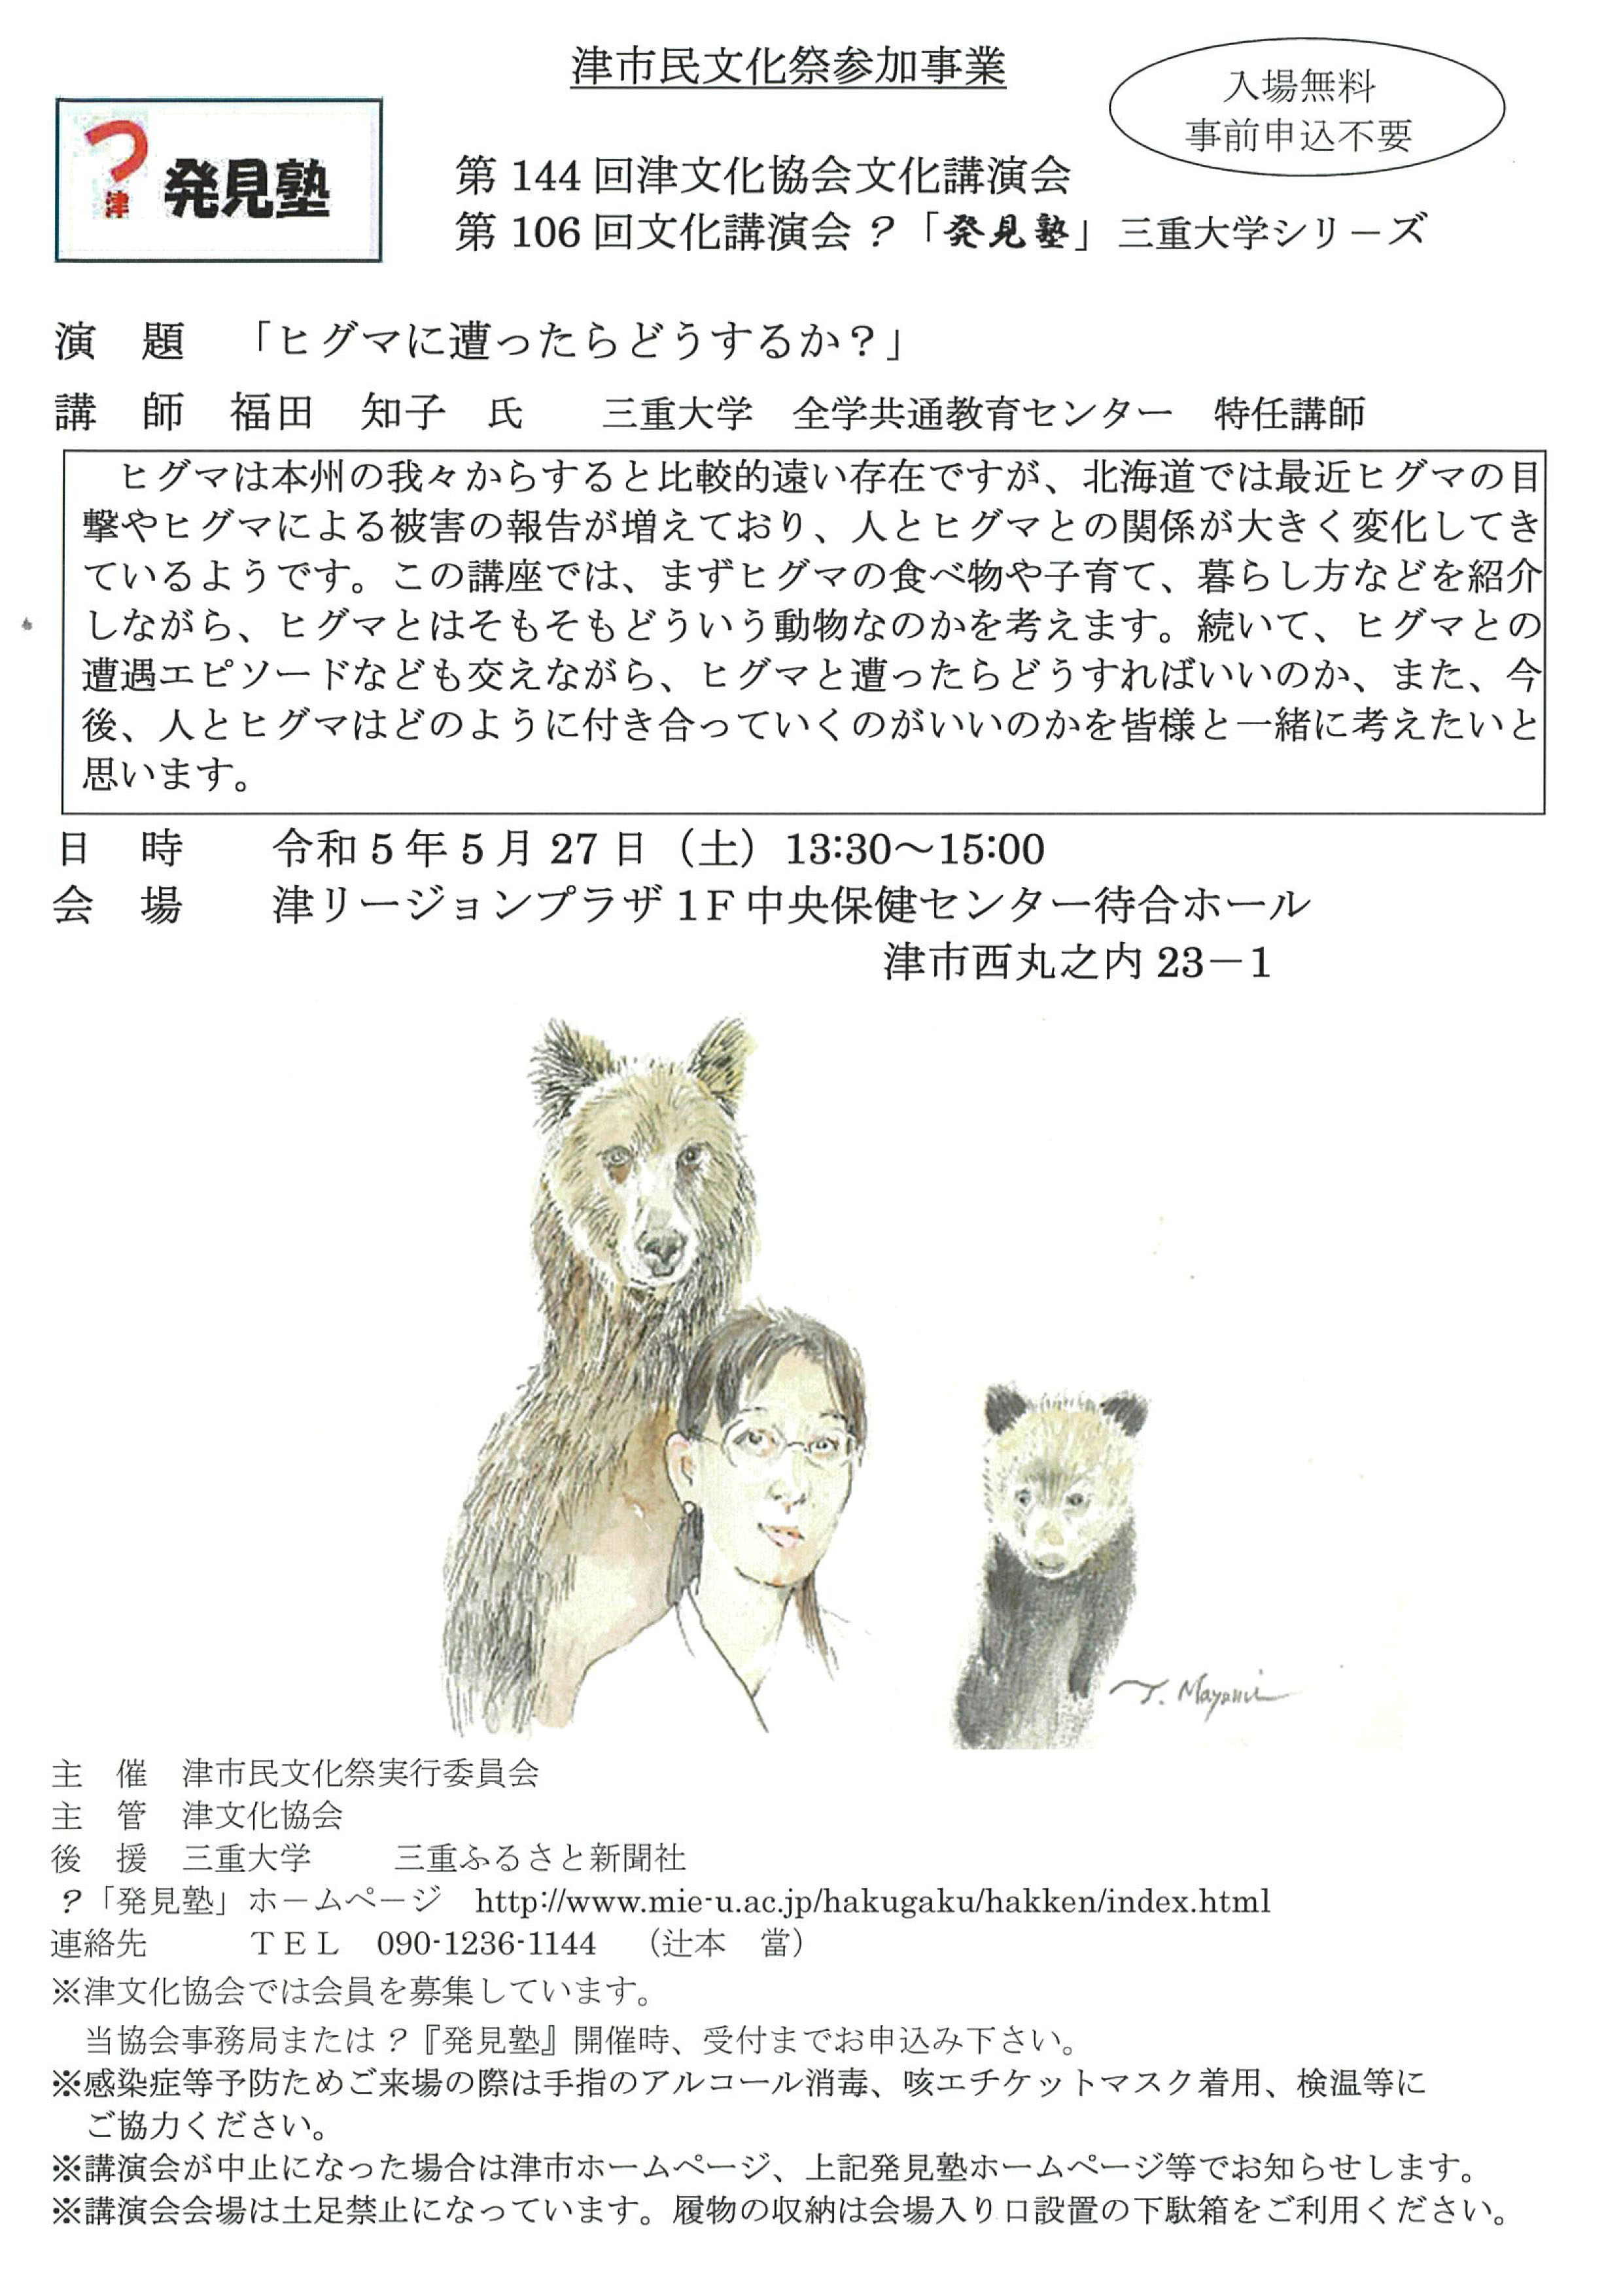 津市民文化祭参加事業
入場無料
事前申込不要
?
津
発見塾
第 144 回津文化協会文化講演会
第 106 回文化講演会?「発見塾」三重大学シリーズ
演 題 「ヒグマに遭ったらどうするか?」
講 師 福田 知子 氏 三重大学 全学共通教育センター 特任講師
ヒグマは本州の我々からすると比較的遠い存在ですが、北海道では最近ヒグマの目
撃やヒグマによる被害の報告が増えており、人とヒグマとの関係が大きく変化してき
ているようです。この講座では、まずヒグマの食べ物や子育て、暮らし方などを紹介
しながら、ヒグマとはそもそもどういう動物なのかを考えます。続いて、ヒグマとの
遭遇エピソードなども交えながら、ヒグマと遭ったらどうすればいいのか、また、今
後、人とヒグマはどのように付き合っていくのがいいのかを皆様と一緒に考えたいと
思います。
日 時 令和 5 年 5 月 27 日（土）13:30～15:00
会 場 津リージョンプラザ 1F 中央保健センター待合ホール
津市西丸之内 23－1
主 催 津市民文化祭実行委員会
主 管 津文化協会
後 援 三重大学 三重ふるさと新聞社
?「発見塾」ホームページ http://www.mie-u.ac.jp/hakugaku/hakken/index.html
連絡先 TEL 090-1236-1144 （辻本 當）
※津文化協会では会員を募集しています。
当協会事務局または?『発見塾』開催時、受付までお申込み下さい。
※感染症等予防ためご来場の際は手指のアルコール消毒、咳エチケットマスク着用、検温等に
ご協力ください。
※講演会が中止になった場合は津市ホームページ、上記発見塾ホームページ等でお知らせします。
※講演会会場は土足禁止になっています。履物の収納は会場入り口設置の下駄箱をご利用ください。